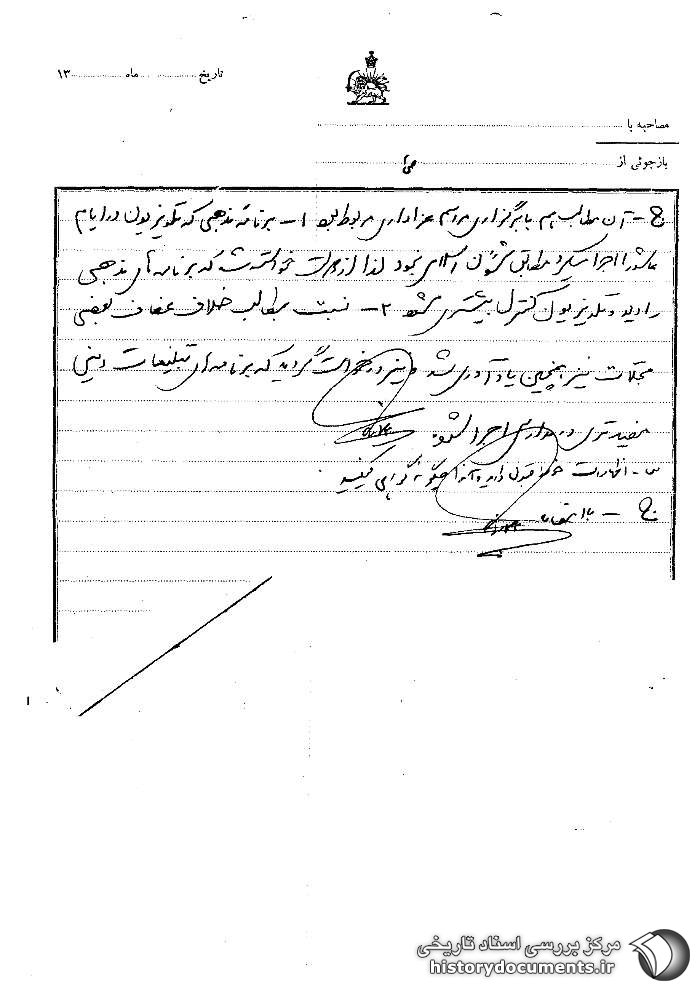 تاریخ ............ ماه ............ ۱۳
مصاحبه با
بازجوئی از
ج - آن مطالب هم با برگزاری مراسم عزاداری مربوط بود ۱- برنامه مذهبی که تلویزیون در ایام
عاشورا اجرا میکرد مطابق شئون اسلامی نبود لذا از دولت خواسته شد که برنامه های مذهبی
رادیو و تلویزیون کنترل بیشتری شود ۲- نسبت بمطالب خلاف عفاف بعضی
مجلات نیز همچنین یادآوری شد و نیز درخواست گردید که برنامه های تبلیغات دینی
مفیدتری در مدارس اجرا شود
س - اظهارات خود را قبول دارید و آنرا چگونه گواهی میکنید
ج - با امضاء
مرکز بررسی اسناد تاریخی
historydocuments.ir